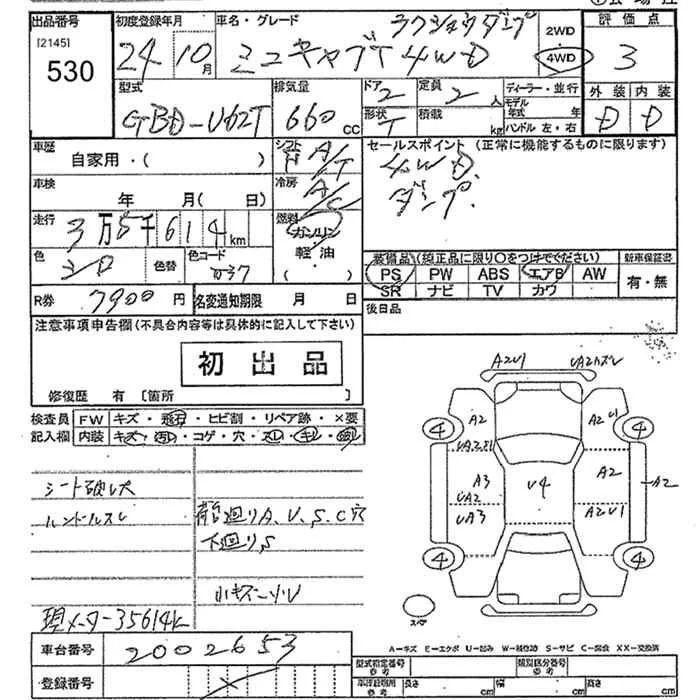 出品番号
[2145]
530
初度登録年月
24 10月
車名・グレード
ミニキャブT 4WD
2WD
4WD
評価点
3
型式
GBD-U62T
排気量
660 cc
ドア 2
形状 T
定員 2 人
積載 kg
ディーラー・並行
モデル年式 年
ハンドル 左・右
外装 内装
D D
車歴
自家用・( )
シフト
A/T
冷房
A/C
セールスポイント(正常に機能するものに限ります)
4WD.
ダンプ.
車検
年 月(日)
走行
3万5千614km
燃料
ガソリン
軽油
( )
色
シロ
色替
色コード
装備品(純正品に限り○をつけてください)
新車保証書
PS PW ABS エアB AW
SR ナビ TV カワ
有・無
R券 7900円
名変通知期限 月 日
後日品
注意事項申告欄(不具合内容等は具体的に記入して下さい)
初出品
修復歴 有〔箇所 〕
検査員記入欄
FW キズ・飛石・ヒビ割・リペア跡・×要
内装 キズ・汚れ・コゲ・穴・スレ・キレ・
シート破レ大
ハンドルスレ
荷台廻りA、U、S、C穴
下廻りS
小キズ
現メーター35614k
車台番号 2002653
登録番号
A2U1
A2
A2U1
A3
UA2
UA3
U4
A2
A2U1
A2
4
4
4
4
スペア
A-キズ E-エクボ U-凹み W-補修跡 S-サビ C-腐食 XX-交換済
型式指定番号 参考
類別区分番号 参考
長さ cm
幅 cm
高さ cm